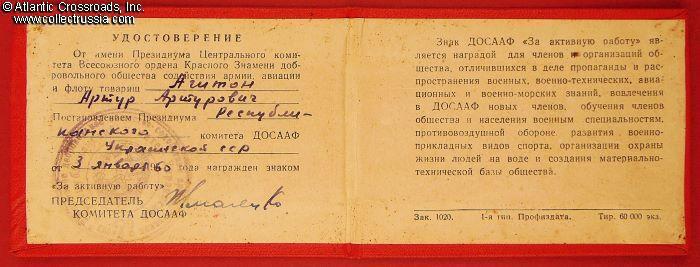 © Atlantic Crossroads, Inc.
www.collectrussia.com
УДОСТОВЕРЕНИЕ
От имени Президиума Центрального коми-
тета Всесоюзного ордена Красного Знамени добровольного общества содействия армии, авиации
и флоту товарищ Агитон
Артур Артурович
Постановлением Президиума Республи-
канского комитета ДОСААФ
Украинской ССР
от 3 января 1960 года награжден знаком
«За активную работу»
ПРЕДСЕДАТЕЛЬ
КОМИТЕТА ДОСААФ
Знак ДОСААФ «За активную работу» яв-
ляется наградой для членов и организаций
общества, отличившихся в деле пропаганды и рас-
пространения военных, военно-технических, авиа-
ционных и военно-морских знаний, вовлечения
в ДОСААФ новых членов, обучения членов
общества и населения военным специальностям,
противовоздушной обороне, развития военно-
прикладных видов спорта, организации охраны
жизни людей на воде и создания материально-
технической базы общества.
Зак. 1020. 1-я тип. Профиздата. Тир. 60 000 экз.